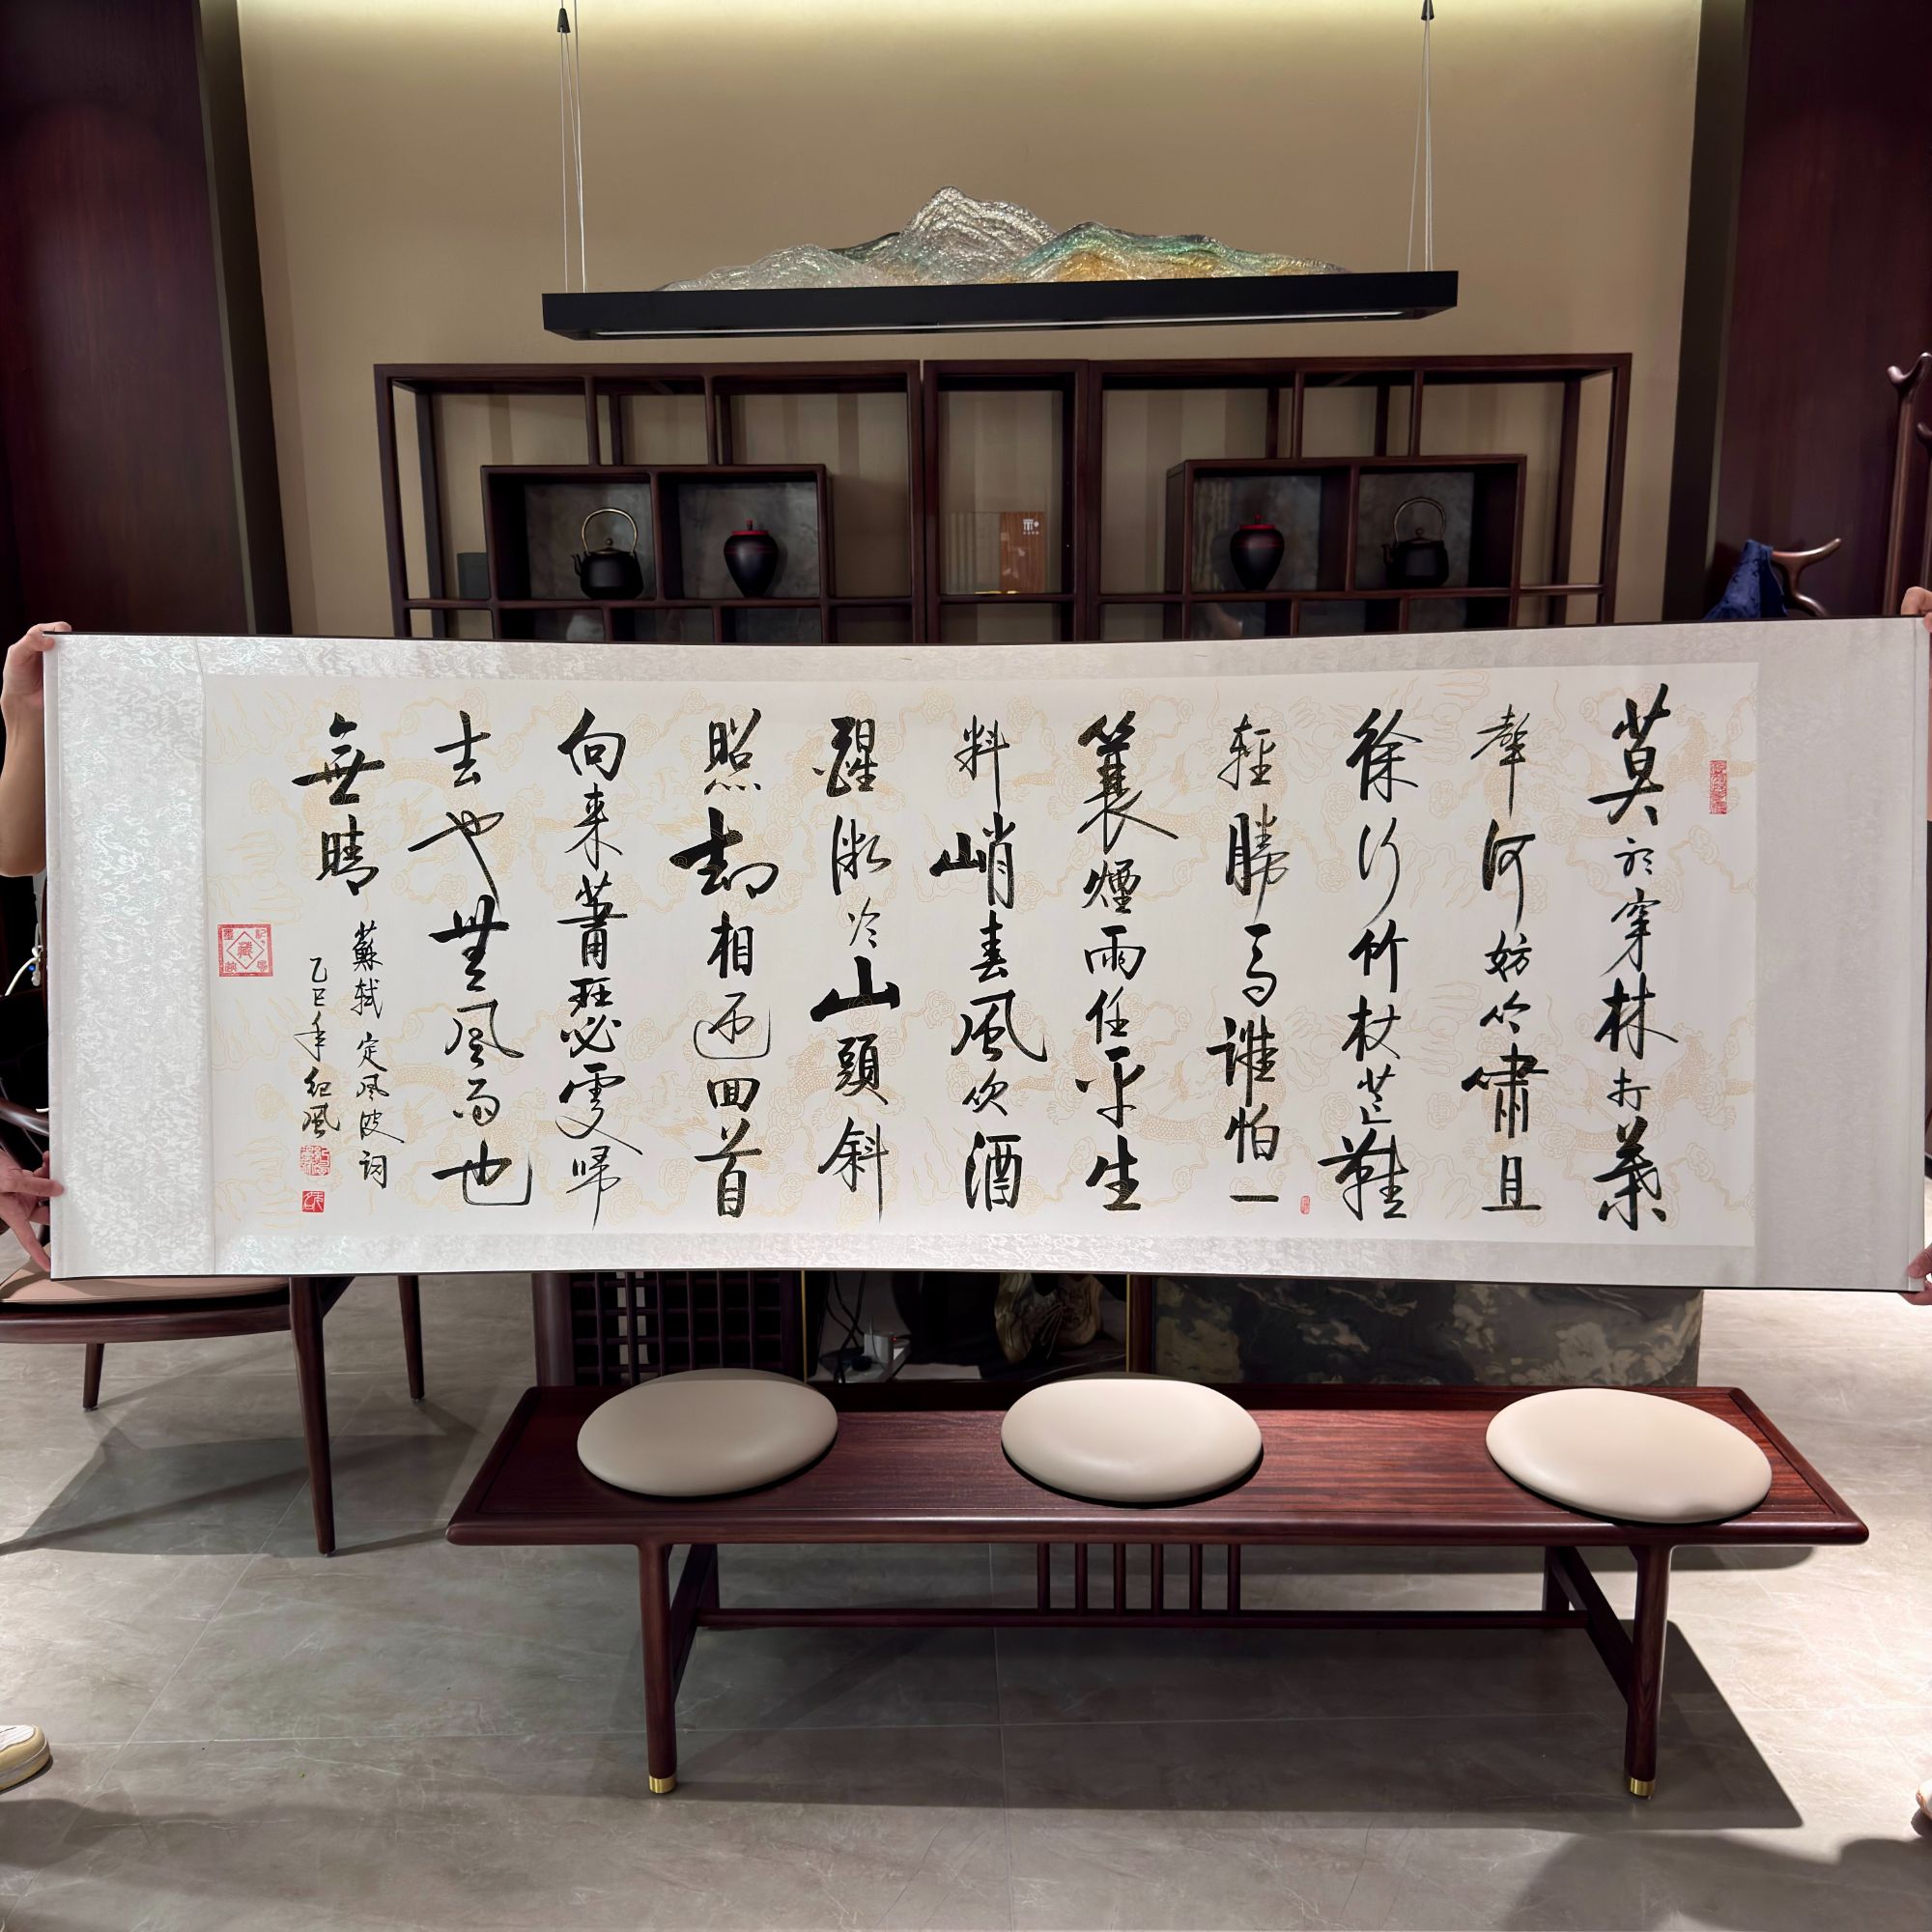 莫聽穿林打葉
聲何妨吟嘯且
徐行竹杖芒鞋
輕勝馬誰怕一
簑煙雨任平生
料峭春風吹酒
醒微冷山頭斜
照却相迎回首
向来蕭瑟處歸
去也無風雨也
無晴
蘇軾定風波詞
乙巳年紀風